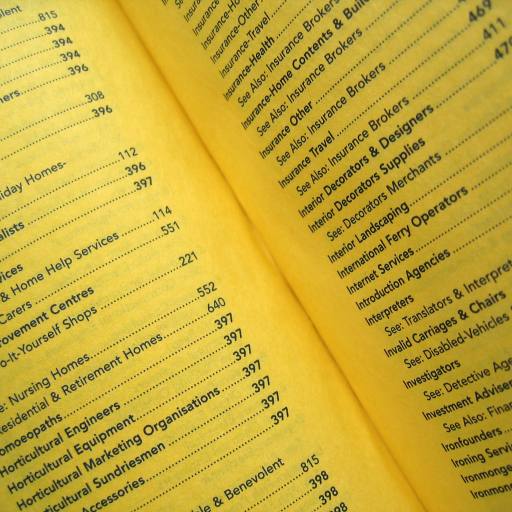 815
394
394
394
396
308
396
112
396
397
114
& Home Help Services 551
Carers
221
o-It-Yourself Shops
552
Nursing Homes 640
Residential & Retirement Homes 397
397
Horticultural Engineers 397
Horticultural Equipment 397
Horticultural Marketing Organisations 397
Sundriesmen 397
Accessories
& Benevolent 815
398
398
398
Insurance-Travel
Insurance-Health
See Also: Insurance Brokers
Insurance-Home Contents &
See Also: Insurance Brokers
Insurance Other
See Also: Insurance Brokers
Insurance Travel
See Also: Insurance Brokers
Interior Decorators & Designers
Interior Decorators Supplies
See: Decorators Merchants
Interior Landscaping
International Ferry Operators
Internet Services
Introduction Agencies
Interpreters
See: Translators &
Invalid Carriages & Chairs
See: Disabled-Vehicles
Investigators
See: Detective
Investment
See Also:
Ironfounders
Ironing
469
411